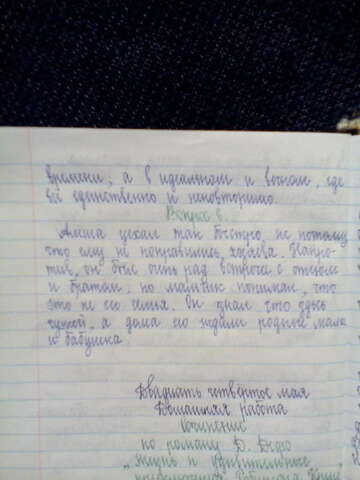 времени, а в идеальном и вечном, где
всё единственно и неповторимо.
Вопрос 6.
Алеша уехал так быстро не потому,
что ему не понравились хозяева. Напро-
тив, он был очень рад встрече с отцом
и братом, но мальчик понимал, что
это не его семья. Он знал что здесь
чужой, а дома его ждали родные мама
и бабушка.
Двадцать четвертое мая
Домашняя работа
Сочинение
по роману Д. Дефо
„Жизнь и удивительные
приключения Робинзона Крузо